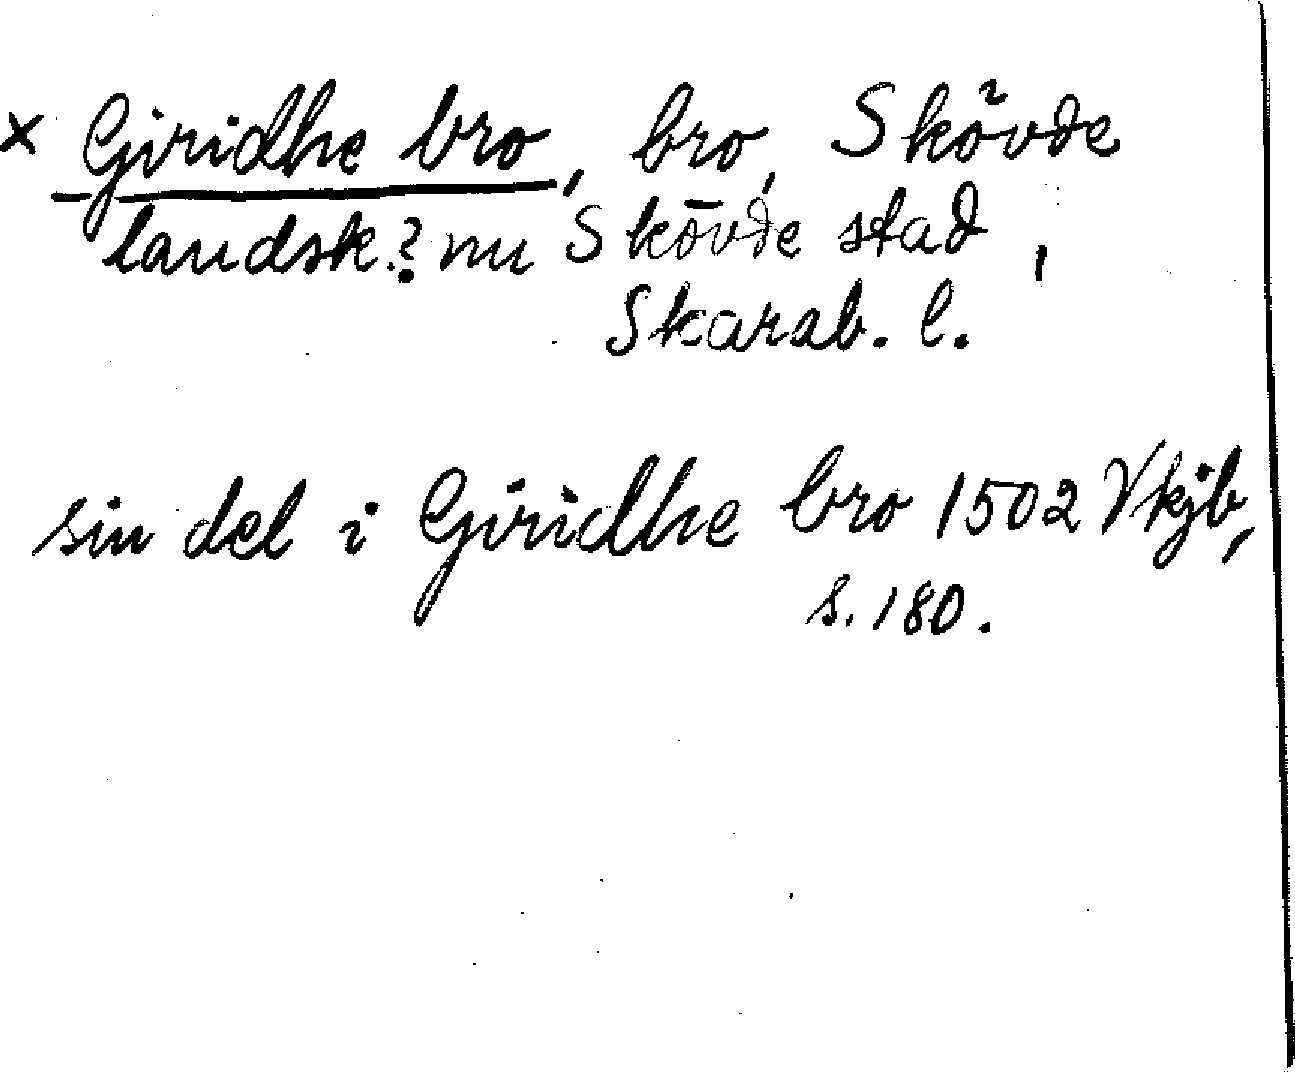 x Giridhe bro, bro, Skövde
landsk.? nu Skövde stad,
Skarab. l.
sin del i Giridhe bro 1502 Vkjb,
s. 180.